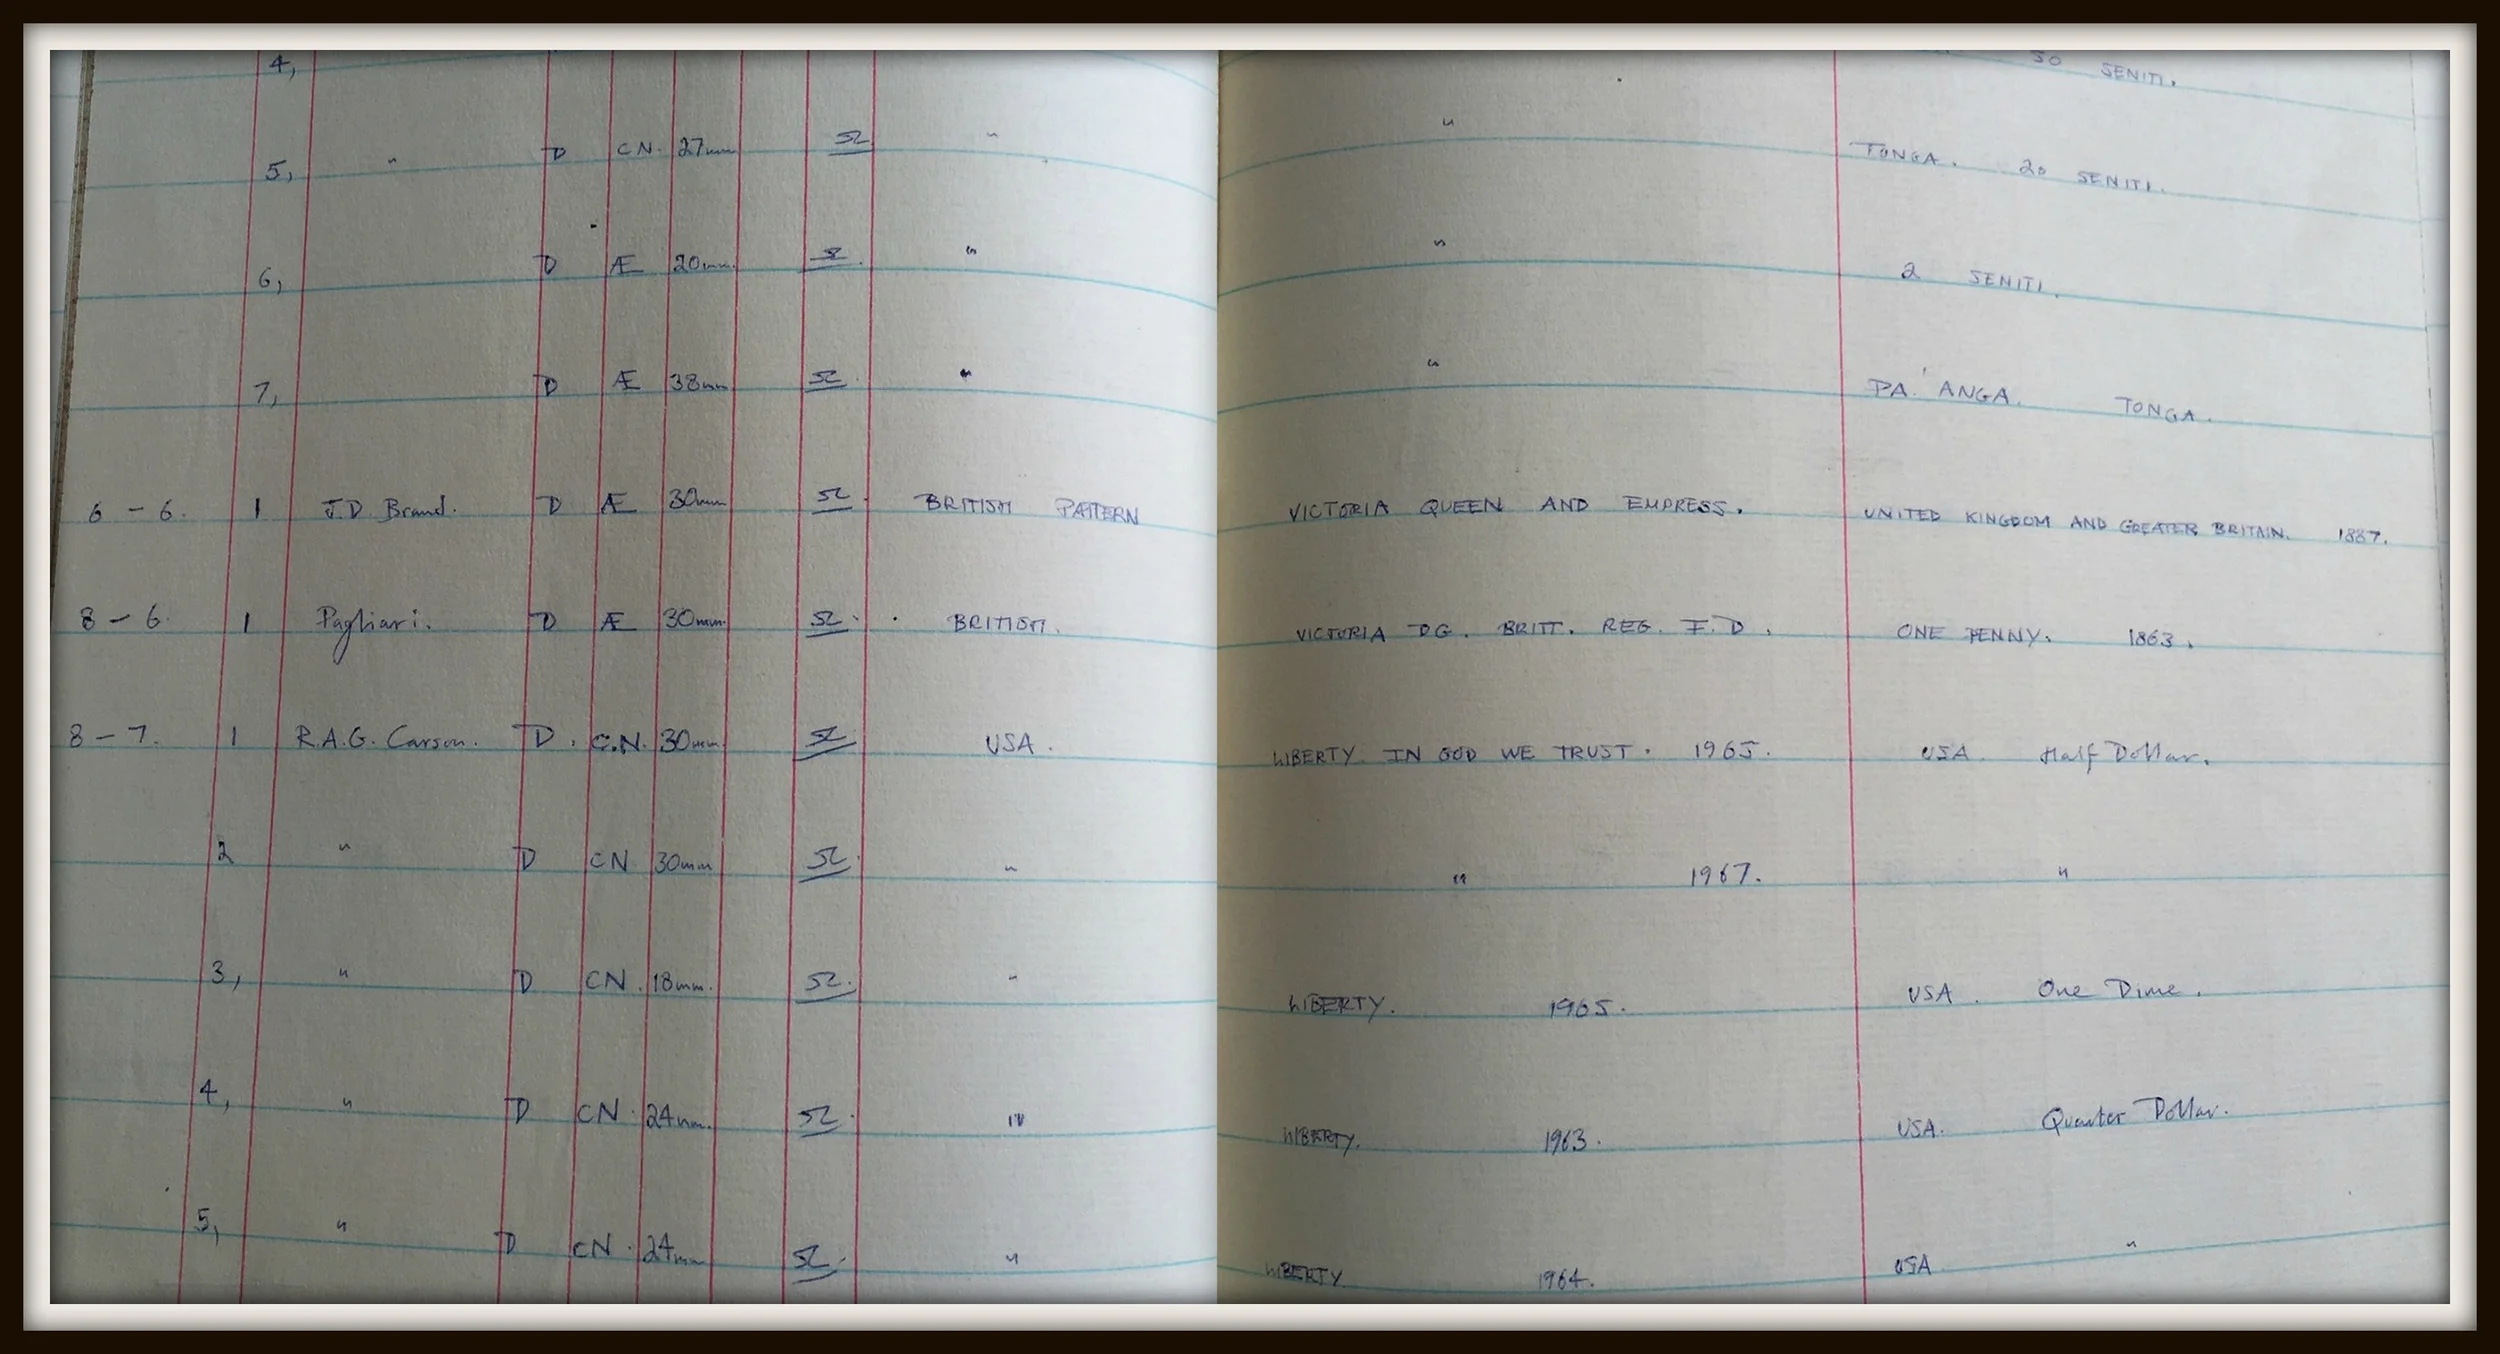 4, 50 SENITI.
5, " D CN. 27mm SL " " TONGA. 20 SENITI.
6, D Æ 20mm. SL. " " 2 SENITI.
7, D Æ 38mm SL. " " PA'ANGA. TONGA.
6 - 6. 1 J.D. Brand. D Æ 30mm SL. BRITISH PATTERN VICTORIA QUEEN AND EMPRESS. UNITED KINGDOM AND GREATER BRITAIN. 1887.
8 - 6. 1 Pagliari. D Æ 30mm. SL. BRITISH. VICTORIA D.G. BRITT. REG. F.D. ONE PENNY. 1863.
8 - 7. 1 R.A.G. Carson. D. C.N. 30mm SL USA. LIBERTY IN GOD WE TRUST. 1965. USA. Half Dollar.
2 " D CN 30mm SL. " " 1967. "
3, " D CN. 18mm. SL. " LIBERTY. 1965. USA. One Dime.
4, " D CN. 24mm. SL. " LIBERTY. 1963. USA. Quarter Dollar.
5, " D CN. 24mm SL. " LIBERTY 1964. USA "